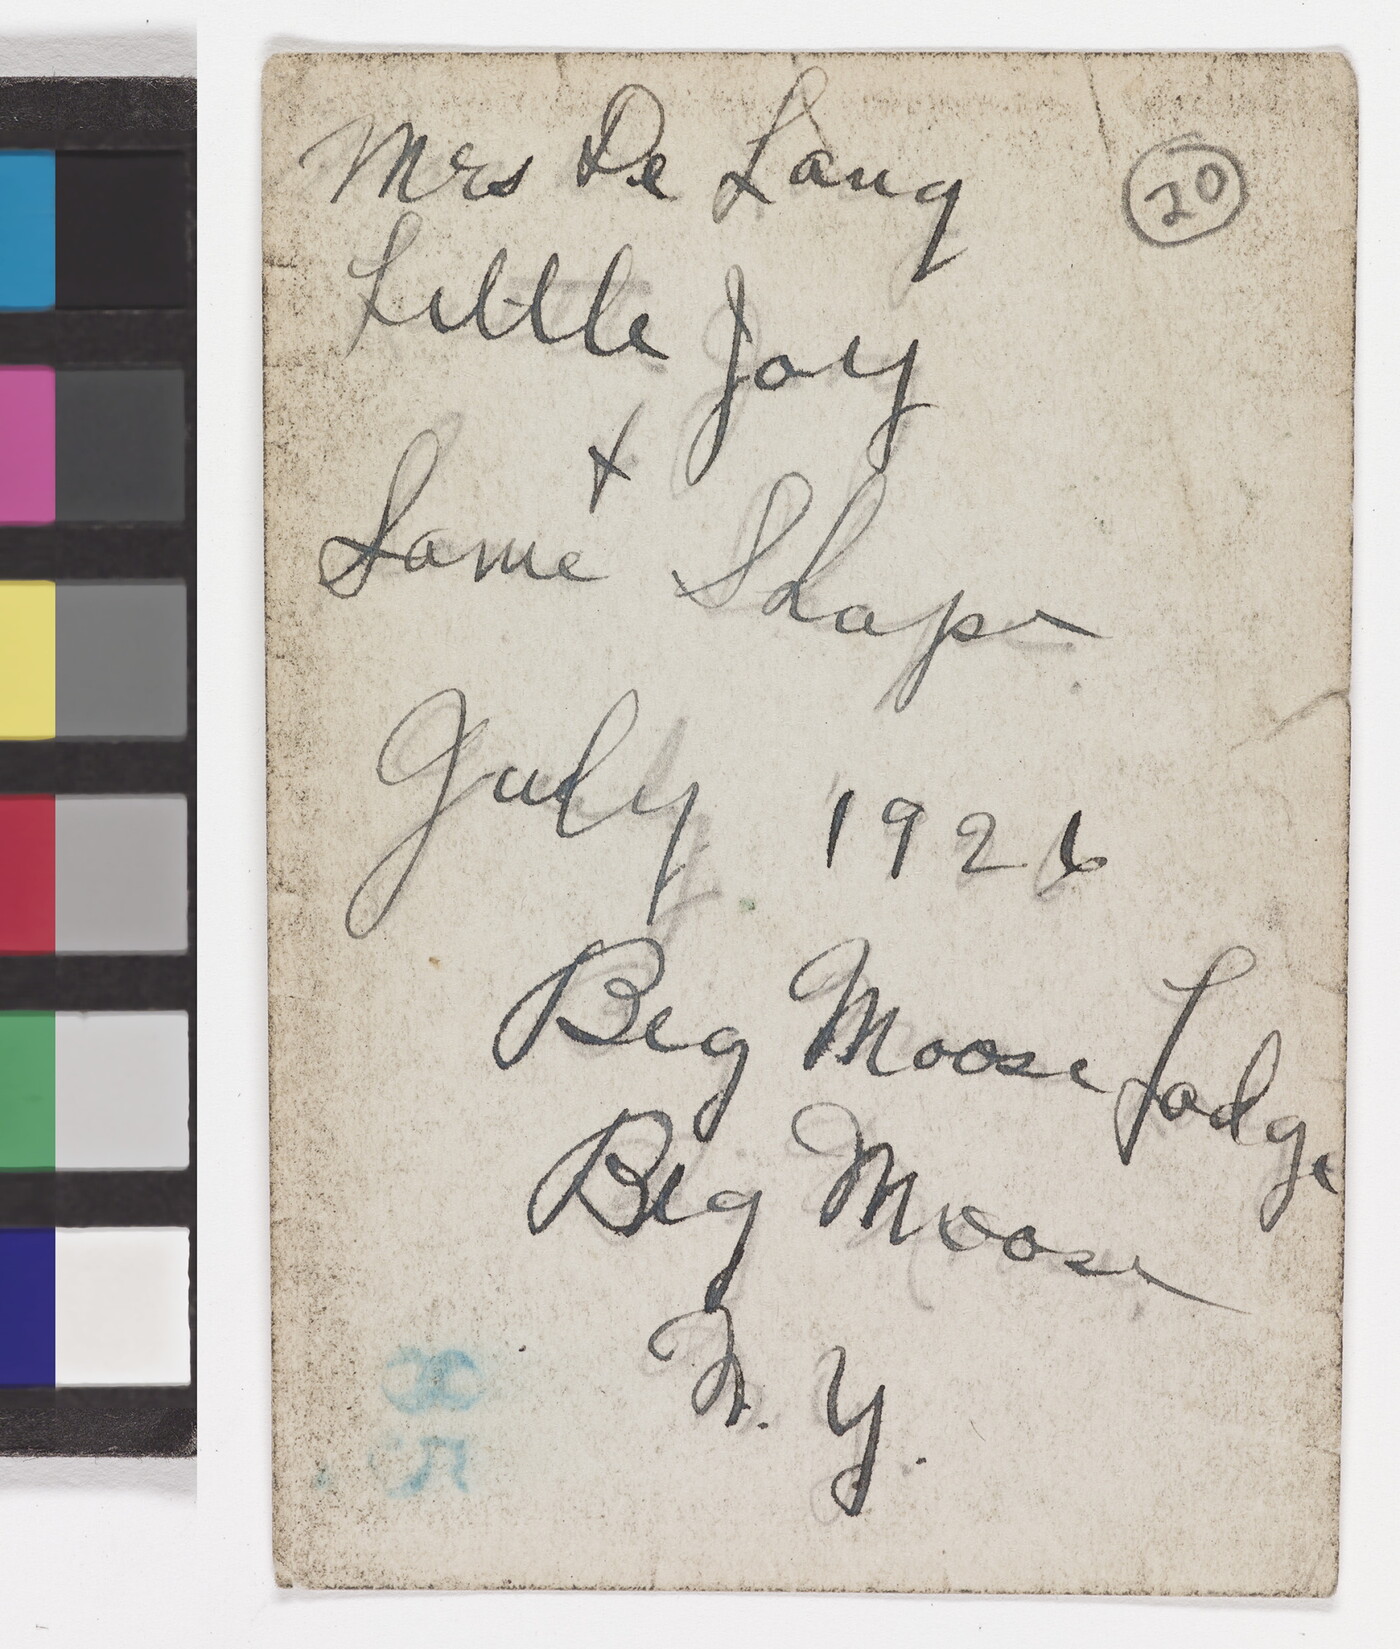 Mrs De Lang
20
Little Joy
+
Same Shape
July 1926
Big Moose Lodge
Big Moose
N. Y.